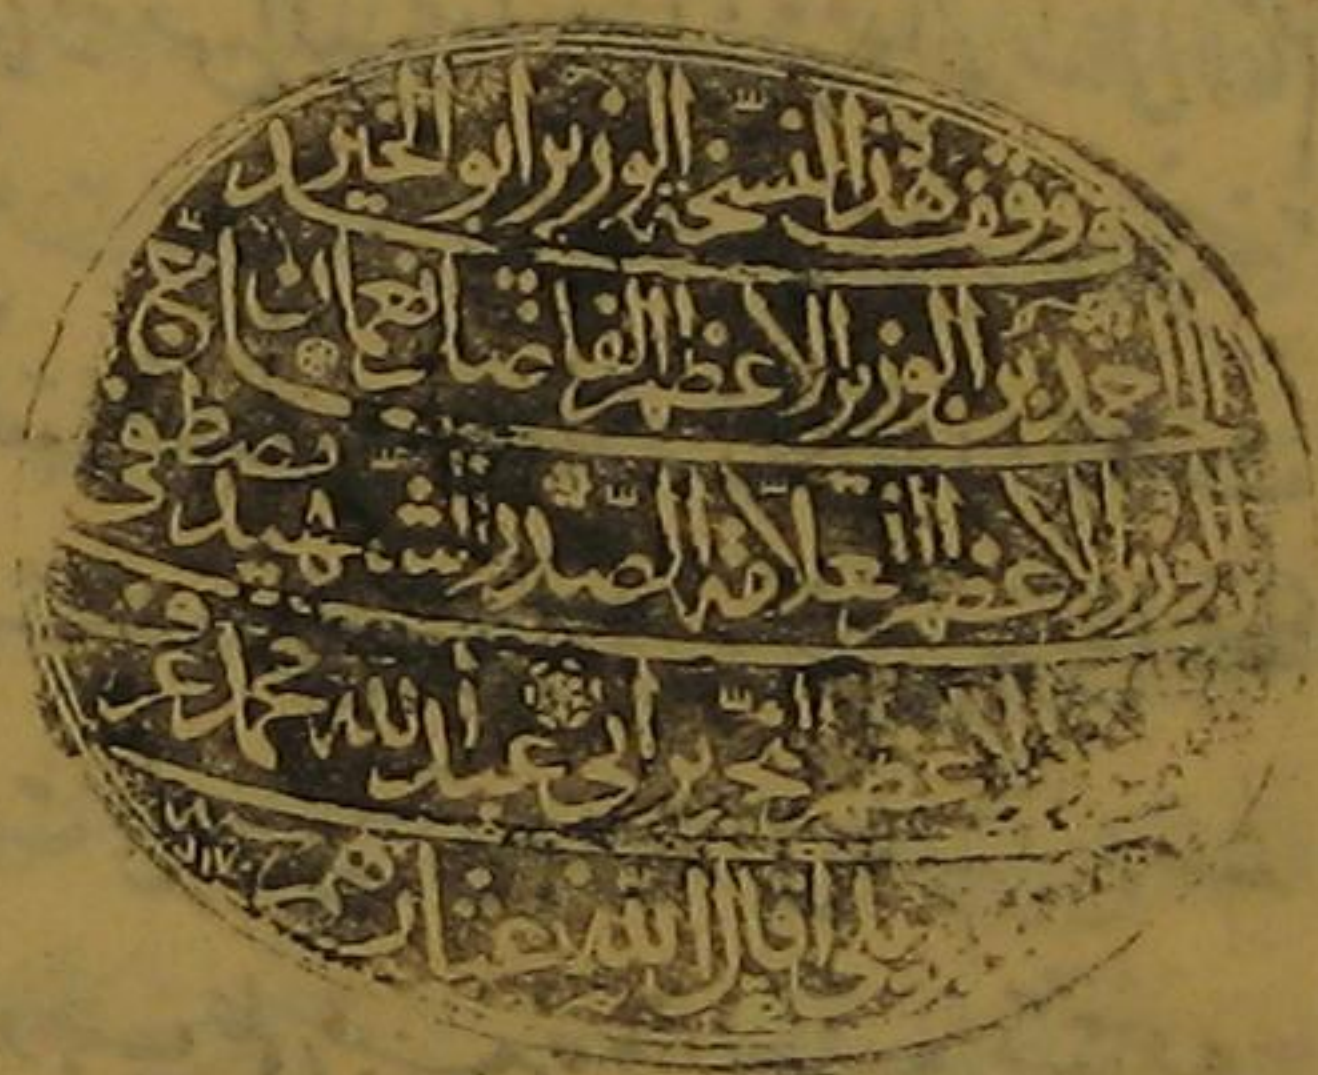 وقف هذا النسخة الوزير ابو الخير
الحاج احمد بن الوزير الاعظم الفاضل نعمان بن
الوزير الاعظم العلامة الصدر الشهيد مصطفى
الاعظم نحرير ابى عبد الله محمد عرف
بكوبريلى اقال الله عثارهم